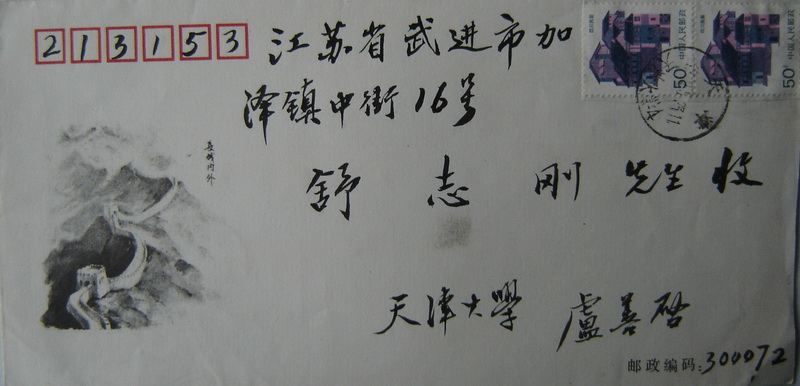 213153
江苏省武进市加
泽镇中街16号
舒志刚 先生 收
长城内外
天津大學 盧善啓
邮政编码:300072
50分
中国人民邮政
50分
中国人民邮政